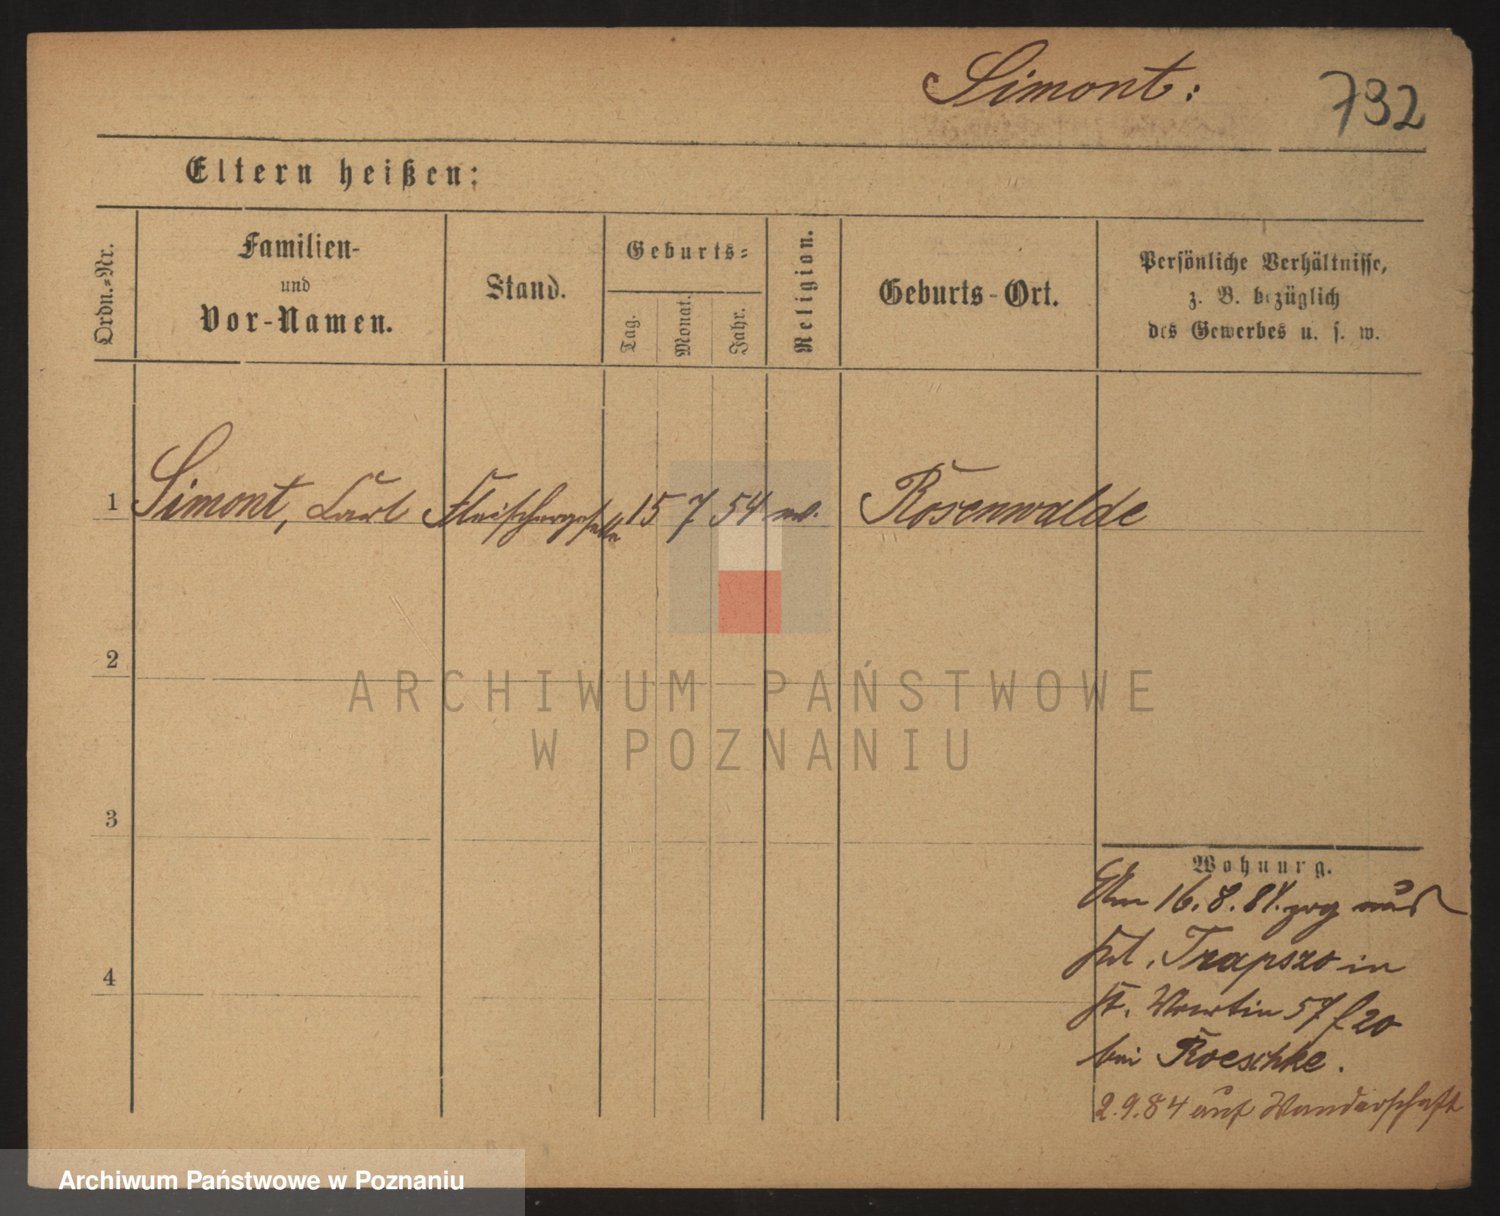 Simont:
732
Eltern heißen:
Ordn.-Nr.
Familien-
und
Vor-Namen.
Stand.
Geburts-
Tag.
Monat.
Jahr.
Religion.
Geburts-Ort.
Persönliche Verhältnisse,
z. B. bezüglich
des Gewerbes u. s. w.
1 Simont, Carl Fleischergeselle 15 7 54 ev. Rosenwalde
2
ARCHIWUM PAŃSTWOWE
W POZNANIU
3
Wohnung.
Am 16.8.84. zog aus
4
Trapszo in
St. Martin 57 f 20
bei Roeschke.
2.9.84 auf Wanderschaft
Archiwum Państwowe w Poznaniu